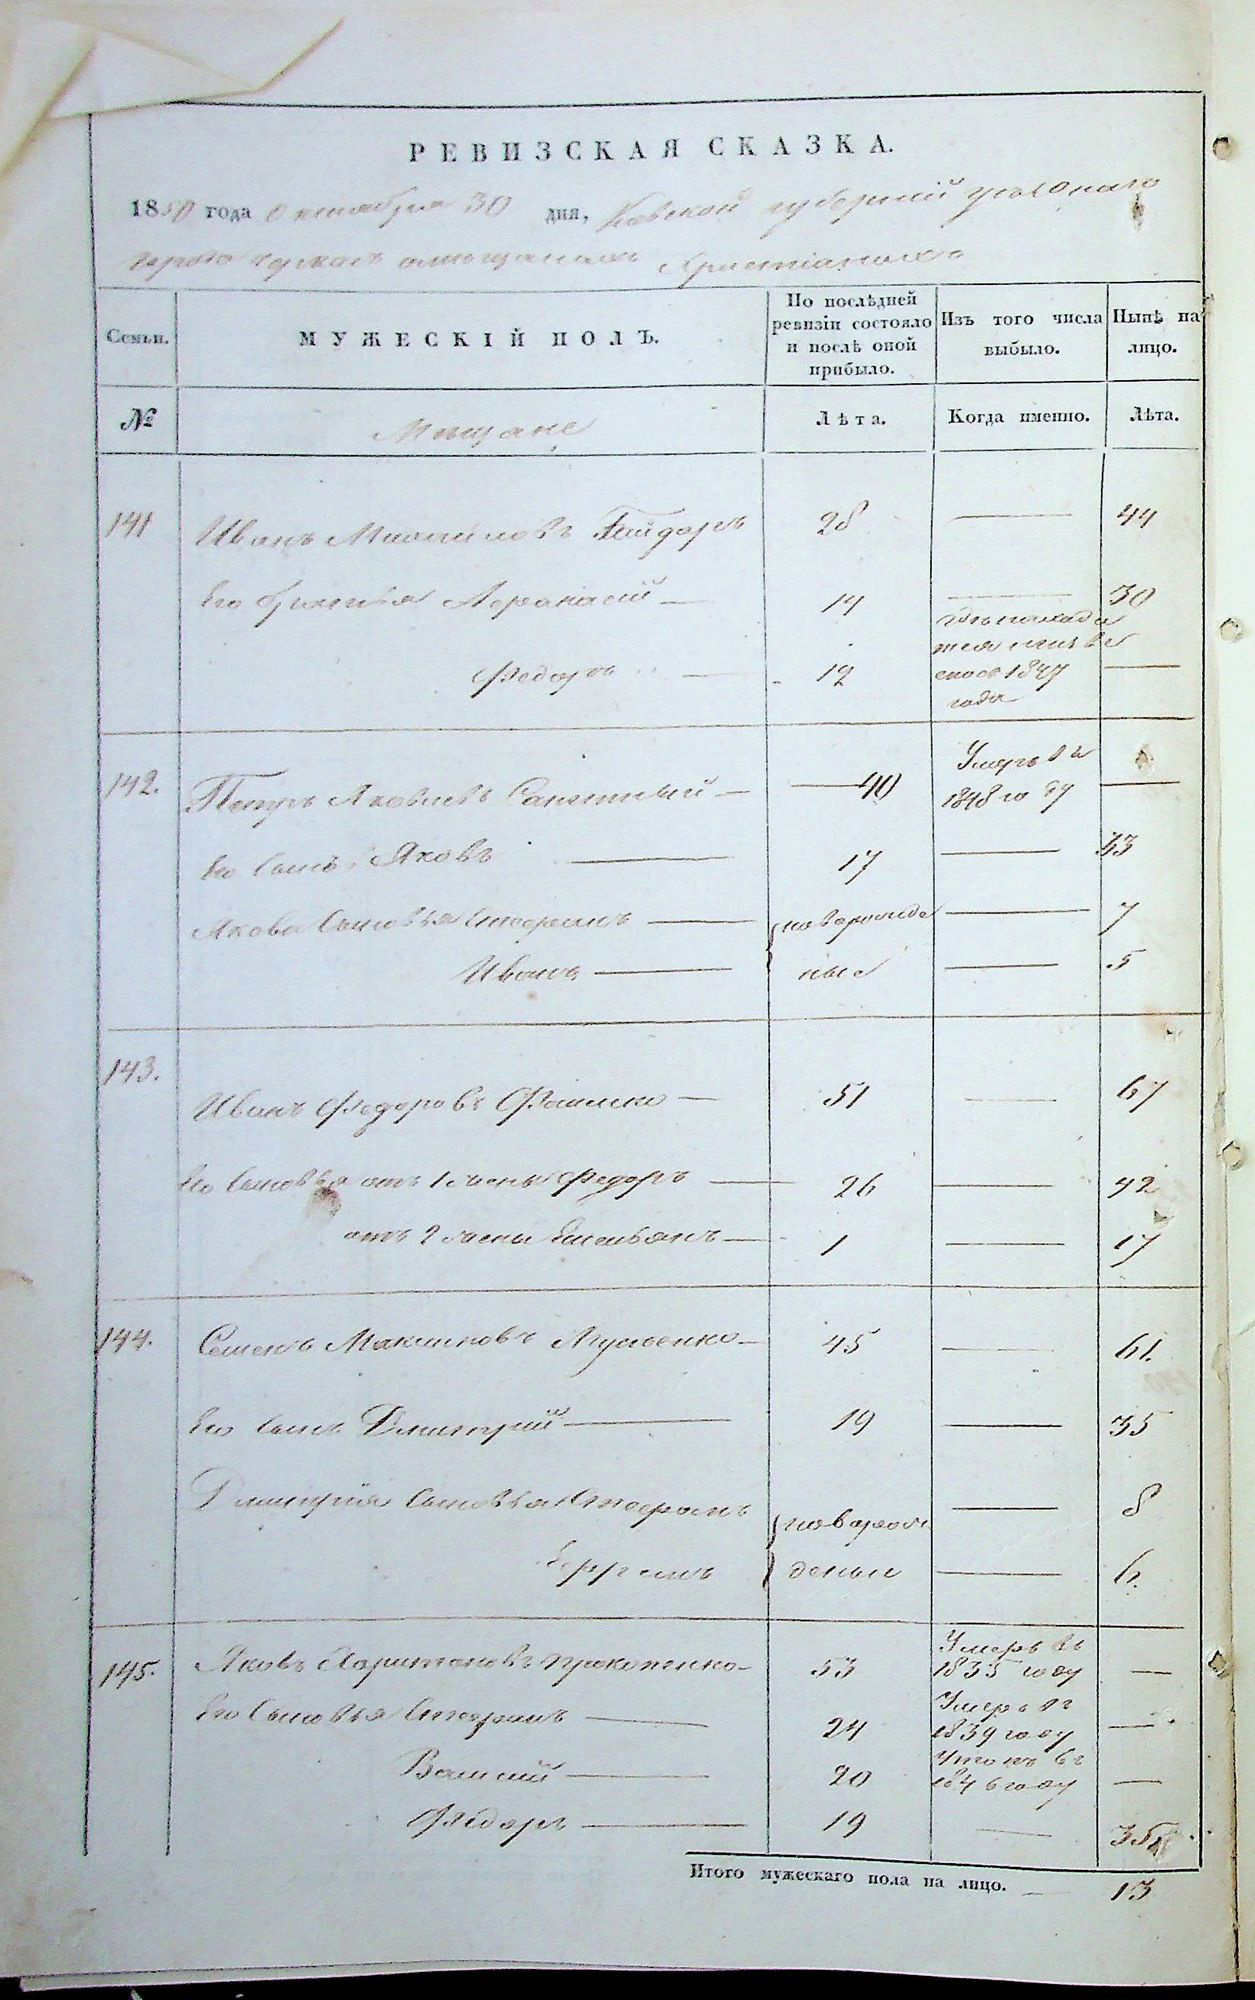 РЕВИЗСКАЯ СКАЗКА.
1850 года октября 30 дня, Киевской губернiи уезднаго
города
Семьи. МУЖЕСКІЙ ПОЛЪ. По послѣдней ревизіи состояло и послѣ оной прибыло. Изъ того числа выбыло. Нынѣ на лицо.
№ Мещане Лѣта. Когда именно. Лѣта.
141 Иванъ Михайловъ Гайдаръ 28 — 44
Его братья Афанасій — 14 — 30
Федоръ — 12 1847 года —
142. Петръ Яковлевъ — 40 Умеръ въ 1848 году —
Его сынъ Яковъ — 17 — 33
Якова сыновья Стефанъ — новорожде — 7
Иванъ — ные — 5
143. Иванъ Федоровъ — 51 — 67
Его сыновья отъ 1 жены Федоръ — 26 — 42
отъ 2 жены Емельянъ — 1 — 17
144. Семенъ Максимовъ — 45 — 61.
Его сынъ Дмитрій — 19 — 35
Дмитрія сыновья Стефанъ новорож — 8
деные — 6.
145. Яковъ Харитоновъ Прокопенко — 53 Умеръ въ 1835 году —
Его сыновья Стефанъ — 24 Умеръ въ 1839 году —
Василій — 20 въ 1846 году —
Федоръ — 19 — 35
Итого мужескаго пола на лицо. — 13